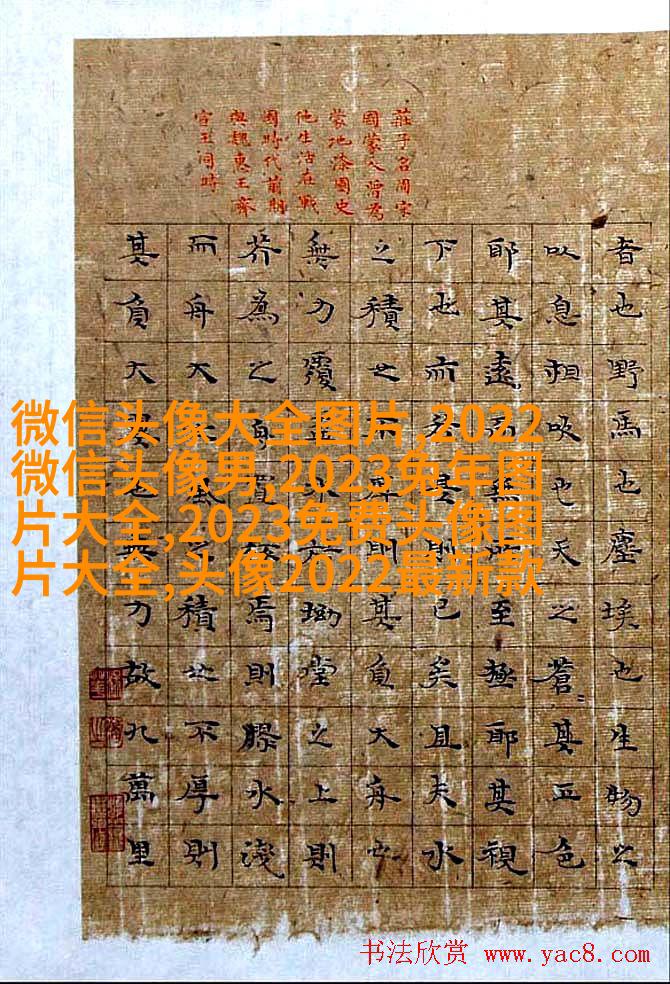 莊子名周宋
國蒙人曾為
蒙地漆園史
他生活在戰
國時代前期
與魏惠王齊
宣王同時
者也野馬也塵埃也生物之
以息相吹也天之蒼〻其正色
耶其遠而無所至極耶其視
下也亦若是則已矣且夫水
之積也不厚則其負大舟也
無力覆杯水於坳堂之上則
芥為之舟置杯焉則膠水淺
而舟大也風之積也不厚則
其負大翼也無力故九萬里
微信头像大全图片,2022
微信头像男,2023兔年图
片大全,2023免费头像图
片大全,头像2022最新款
书法欣赏 www.yac8.com